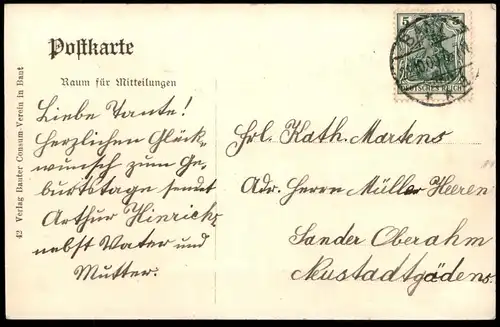 Postkarte
Raum für Mitteilungen
Liebe Tante!
Herzlichen Glück-
wunsch zum Ge-
burtstage sendet
Arthur Hinrichs
nebst Vater und
Mutter.
42 Verlag Banter Consum-Verein in Bant
5
DEUTSCHES REICH
Frl. Kath. Martens
Adr. Herrn Müller Heeren
Sander Oberahm
Neustadtgödens.